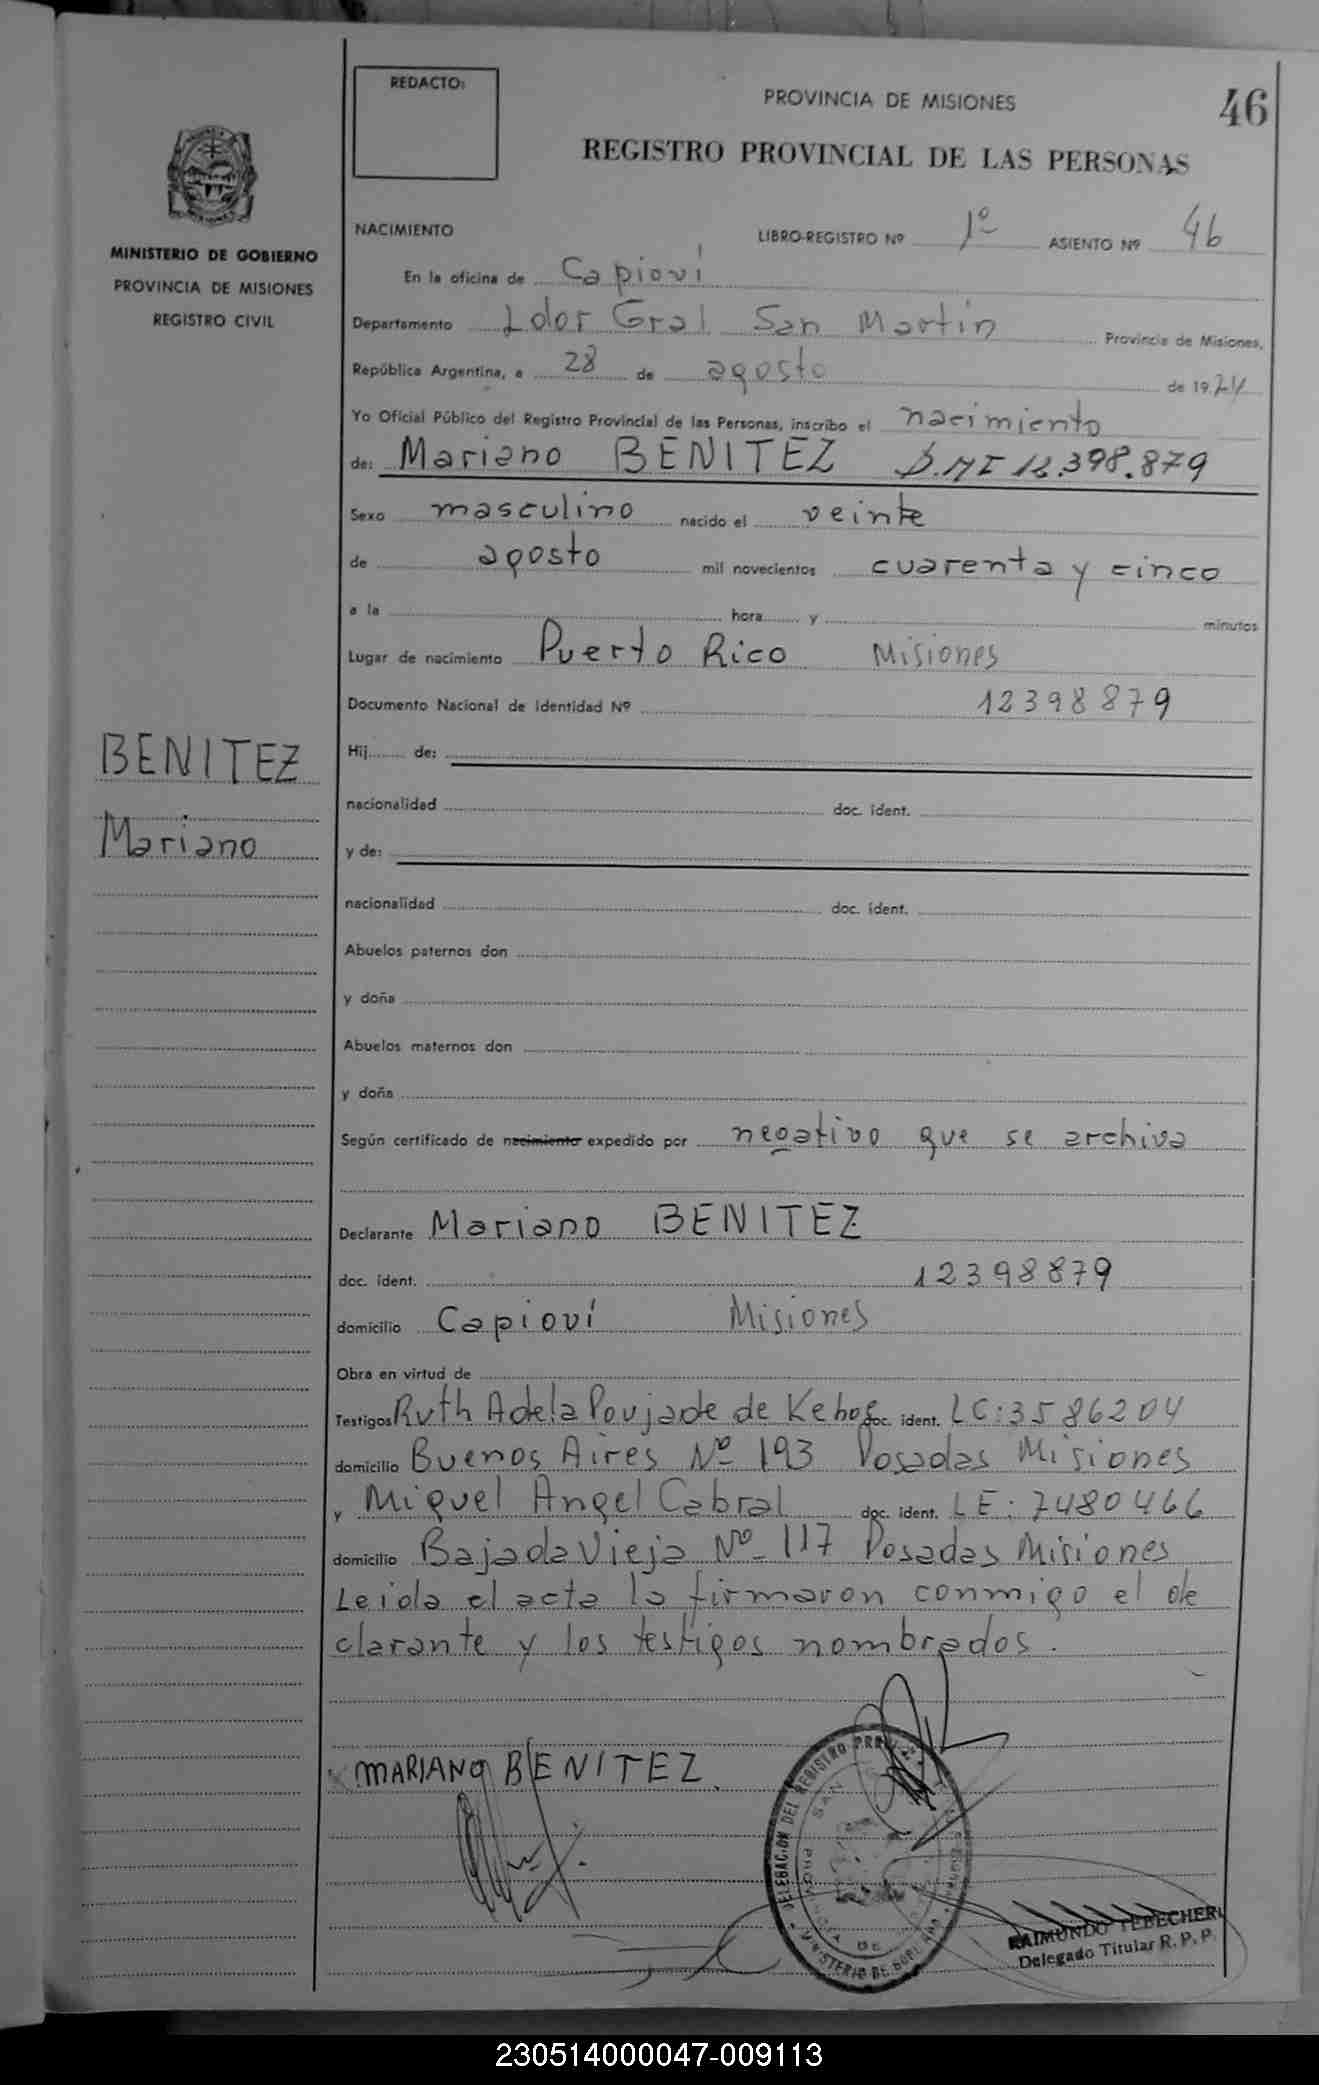 REDACTO:
PROVINCIA DE MISIONES
46
REGISTRO PROVINCIAL DE LAS PERSONAS
MINISTERIO DE GOBIERNO
PROVINCIA DE MISIONES
REGISTRO CIVIL
NACIMIENTO
LIBRO-REGISTRO Nº 1º ASIENTO Nº 46
En la oficina de Capioví
Departamento Ldor Gral San Martín Provincia de Misiones,
República Argentina, a 28 de agosto de 1974
Yo Oficial Público del Registro Provincial de las Personas, inscribo el nacimiento
de: Mariano BENITEZ D.N.I 12.398.879
Sexo masculino nacido el veinte
de agosto mil novecientos cuarenta y cinco
a la hora y minutos
Lugar de nacimiento Puerto Rico Misiones
Documento Nacional de Identidad Nº 12398879
BENITEZ
Mariano
Hij de:
nacionalidad doc. ident.
y de:
nacionalidad doc. ident.
Abuelos paternos don
y doña
Abuelos maternos don
y doña
Según certificado de nacimiento expedido por negativo que se archiva
Declarante Mariano BENITEZ
doc. ident. 12398879
domicilio Capioví Misiones
Obra en virtud de
Testigos Ruth Adela Poujade de doc. ident. LC: 3586204
domicilio Buenos Aires Nº 193 Posadas Misiones
y Miguel Angel Cabral doc. ident. LE: 7480466
domicilio Bajada Vieja Nº 117 Posadas Misiones
Leida el acta la firmaron conmigo el de
clarante y los testigos nombrados.
MARIANO BENITEZ.
DELEGACION DEL REGISTRO
PROVINCIA DE
MINISTERIO DE
RAIMUNDO TEBECHERI
Delegado Titular R. P. P.
230514000047-009113